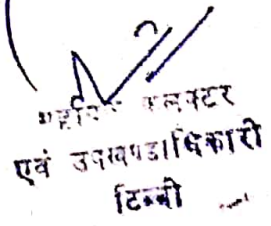 सहायक कलक्टर
एवं उपखण्डाधिकारी
टिब्बी